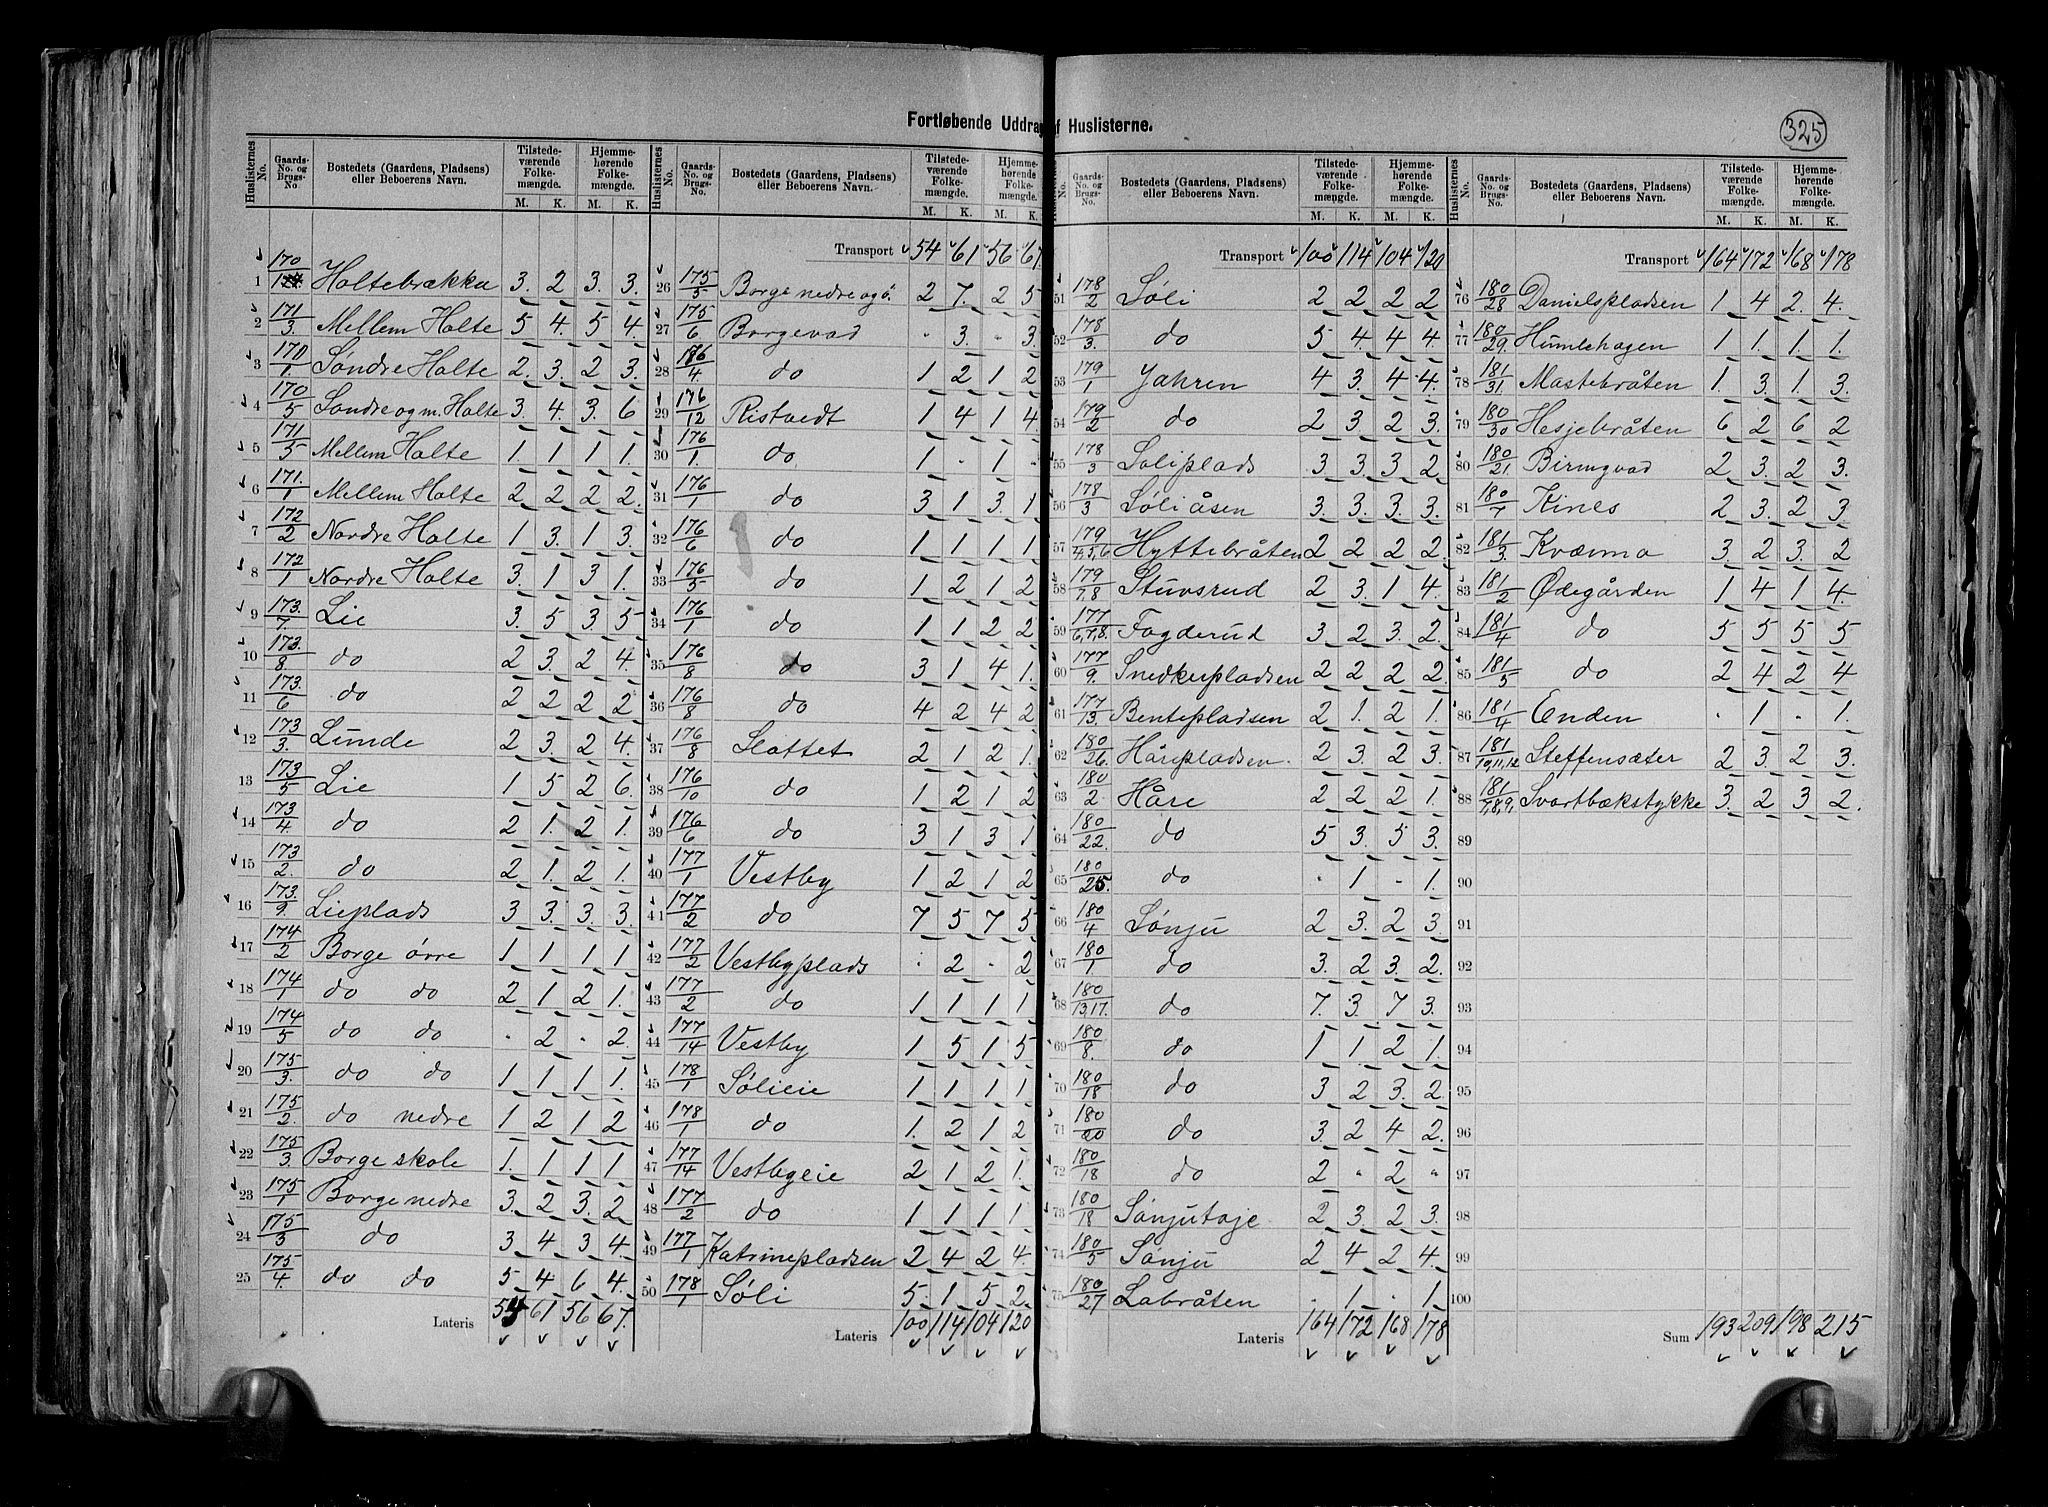 325
Fortløbende Uddrag af Huslisterne.
Huslisternes No. Gaards-No. og Brugs-No Bostedets (Gaardens, Pladsens) eller Beboerens Navn. Tilstedeværende Folkemængde. M. K. Hjemmehørende Folkemængde. M. K.
1 170/ Holtebrækka 3. 2 3. 3.
2 171/3. Mellem Holte 5 4. 5 4.
3 170/1. Søndre Holte 2. 3. 2 3.
4 170/5 Søndre og m. Holte 3. 4. 3. 6
5 171/5 Mellem Holte 1. 1. 1. 1.
6 171./1 Mellem Holte 2 2 2 2.
7 172/2 Nordre Holte 1 3. 1 3.
8 172/1 Nordre Holte 3. 1 3 1.
9 173./7. Lie 3. 5 3. 5
10 173./8. do 2 3. 2 4.
11 173./6 do 2 2 2 2
12 173/3. Lunde 2 3. 2 4.
13 173/5 Lie 1 5 2 6.
14 173/4. do 2 1. 2 1.
15 173/2. do 2 1. 2 1.
16 173./9. Lieplads 3 3. 3. 3.
17 174/2 Borge øvre 1 1 1 1
18 174/1 do do 2 1 2 1.
19 174/5 do do - 2 - 2.
20 175/3. do do 1 1 1 1.
21 175/2. do nedre 1 2 1 2
22 175/3. Borge skole 1. 1 1 1
23 175/1 Borge nedre 3. 2 3. 2
24 175/3 do 3 4. 3 4.
25 175/4. do do 5 4 6 4.
Lateris 54 61 56 67.
Huslisternes No. Gaards-No. og Brugs-No Bostedets (Gaardens, Pladsens) eller Beboerens Navn. Tilstedeværende Folkemængde. M. K. Hjemmehørende Folkemængde. M. K.
Transport 54 61 56 67.
26 175/5 Borge nedre og ö. 2 7. 2 5
27 175/6 Borgevad - 3. - 3.
28 /4. do 1 2 1 2
29 176/12 Ristvedt 1 4 1 4.
30 176/1. do 1 - 1 -
31 176/1 do 3 1 3. 1
32 176/6 do 1 1 1 1
33 176/5 do 1 2 1 2
34 176/1 do 1 1 2 2
35 176/8 do 3 1 4 1.
36 176/8 do 4 2 4 2
37 176/8 Slottet 2 1 2 1.
38 176/10 do 1 2 1 2
39 176/6 do 3 1 3 1
40 177/1 Vestby 1 2 1 2
41 177/2 do 7 5 7 5
42 177/2 Vestbyplads - 2 - 2
43 177/2 do 1 1 1 1
44 177/14 Vestby 1 5 1 5
45 178/1 Sølieie 1 1 1 1
46 178/1 do 1. 2 1 2
47 177/14 Vestbyeie 2 1 2 1.
48 177/2 do 1 1 1 1.
49 177/1 Katrinepladsen 2 4 2 4.
50 178/1 Søli 5 1 5 2.
Lateris 100 114 104 120
Huslisternes No. Gaards-No. og Brugs-No Bostedets (Gaardens, Pladsens) eller Beboerens Navn. Tilstedeværende Folkemængde. M. K. Hjemmehørende Folkemængde. M. K.
Transport 100 114 104 120
51 178/2 Søli 2 2 2 2
52 178/3. do 5 4 4 4
53 179/1 Jahren 4 3. 4 4.
54 179/2 do 2 3. 2 3.
55 178/3 Soliplads 3 3. 3 2
56 178/3 Søliåsen 3. 3. 3. 3.
57 179/4,5,6 Hyttebråten 2 2 2 2.
58 179/7,8 Stuvsrud 2 3. 1 4.
59 177/6,7,8. Fagderud 3 2 3. 2.
60 177/9. Snedkerpladsen 2 2 2 2.
61 177/13. Bentepladsen 2 1. 2 1.
62 180/26. Hårepladsen. 2 3. 2 3.
63 180/2 Håre 2 2 2 1.
64 180/22. do 5 3. 5 3.
65 180/25. do - 1 - 1.
66 180/4 Sønju 2 3. 2 3.
67 180/1. do 3. 2 3. 2.
68 180/13,17. do 7. 3. 7 3.
69 180/8. do 1 1. 2 1.
70 180/18 do 3 2 3. 2.
71 180/20 do 3. 2 4 2.
72 180/18 do 2 " 2 "
73 180/18 Sønjutaje 2 3. 2 3.
74 180/5 Sønju 2 4 2 4.
75 180/27 Labråten - 1 - 1.
Lateris 164 172 168 178
Huslisternes No. Gaards-No. og Brugs-No Bostedets (Gaardens, Pladsens) eller Beboerens Navn. Tilstedeværende Folkemængde. M. K. Hjemmehørende Folkemængde. M. K.
Transport 164 172 168 178
76 180/28 Danielspladsen 1 4 2. 4.
77 180/29. Humlehagen 1 1. 1 1.
78 181/31. Mastebråten 1. 3 1. 3.
79 180/30 Hesjebråten 6 2 6 2
80 180/21. Birmgvad 2 3. 2 3.
81 180/7 Kines 2 3. 2 3
82 181/3. Kværma 3 2 3. 2
83 181/2 Ødegården 1 4 1 4.
84 181/4 do 5 5 5 5
85 181/5 do 2 4 2 4
86 181/4 Enden - 1 - 1.
87 181/10,11,12 Steffensæter 2 3. 2 3.
88 181/7,8,9, Svartbækstykke 3. 2 3 2.
89
90
91
92
93
94
95
96
97
98
99
100
Sum 193 209 198 215